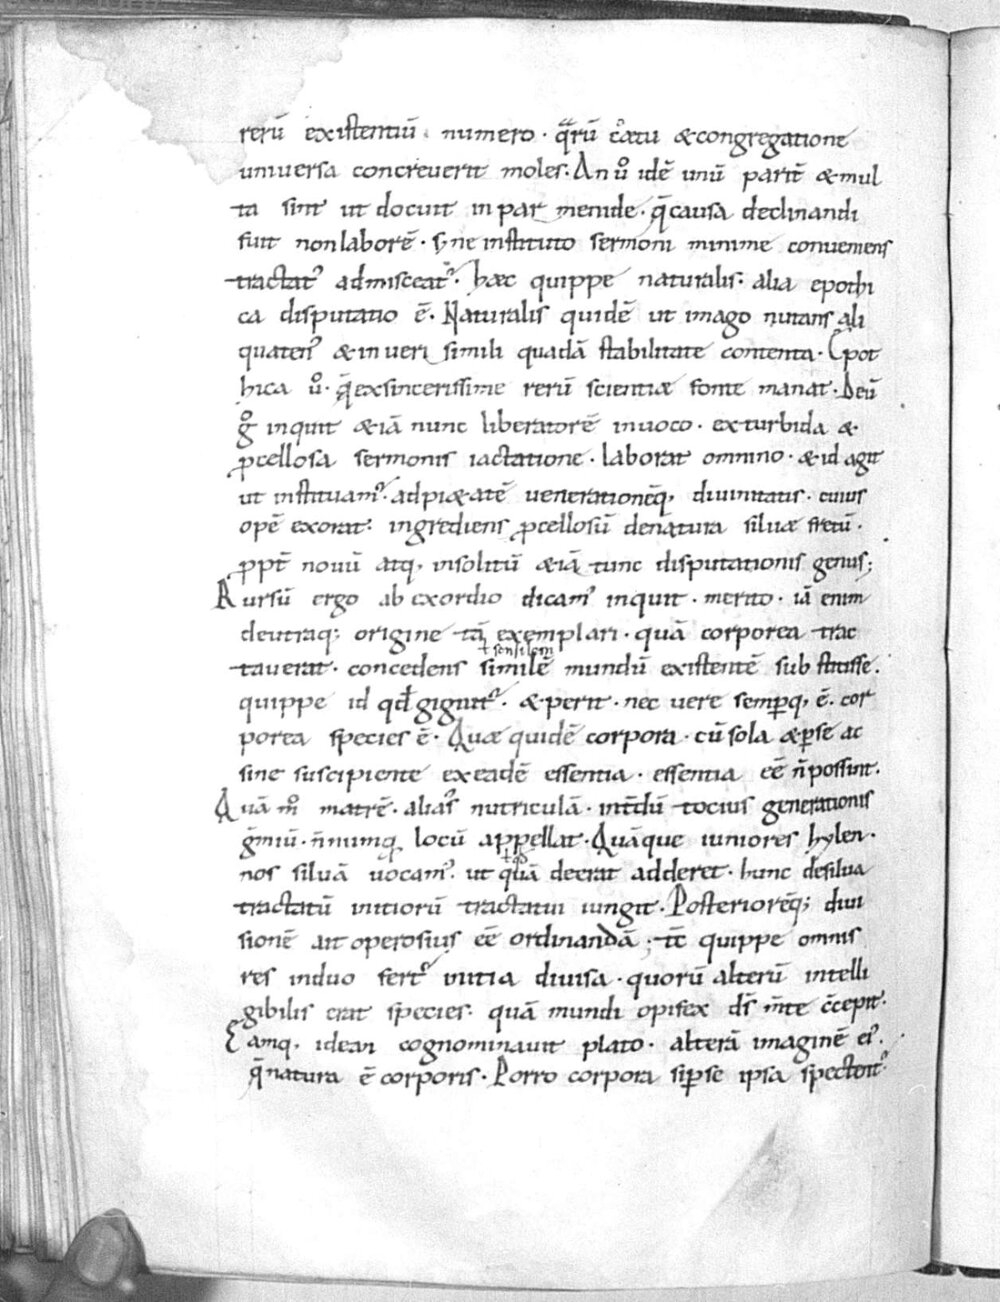 rerū existentiū numero · q̄rū cͦatu & congregatione
universa concreverit moles · An ūͦ idē unū paritͤ & mul
ta sint ut docuit in parmenide · q̄ causa declinandi
fuit non laborē · s; ne instituto sermoni minime conveniens
tractatꝰ admisceatꝰ · hæc quippe naturalis · alia epothi
ca disputatio ē · Naturalis quidē ut imago nutans ali
quatenꝰ & in veri simili quadā stabilitate contenta · Epot
hica ūͦ · q̄ ex sincerissime rerū scientiæ fonte manat · Deū
gͦ inquit & iā nunc liberatorē invoco · ex turbida &
ꝓcellosa sermonis iactatione · laborat omnino · & id agit
ut instituamꝰ · ad pi&atē venerationēq, divinitatis · cuius
opē exorat: ingrediens ꝓcellosū denatura silvæ fretū ·
ꝓpt̄ novū atq, insolitū & iā tunc disputationis genus;
Rursū ergo ab exordio dicamꝰ inquit · merito · iā enim
deutraq; origine tā exemplari · quā corporea trac
ł sensilem
taverat · concedens similē mundū existentē substitisse.
quippe id qđ gignitꝰ · & perit · nec vere semꝑq, ē · cor
porea species ē · Quæ quidē corpora · cū sola & ꝑse ac
sine suscipiente ex eadē essentia · essentia eē n̄ possint ·
Quā mͦ matrē · aliasꝰ nutriculā · int̄dū tocius generationis
g̃miū · n̄numq̄ locū appellat · Quāque iuniores hylen ·
nos silvā vocamꝰ · ut quā deerat adderet · hunc desilva
tractatū initiorū tractatui iungit · Posteriorēq; divi
sionē ait operosius eē ordinandā ; tc̄ quippe omnis
res in duo fertꝰ initia divisa · quorū alterū intelli
gibilis erat species · quā mundi opifex dš m̄te c̄cepit ·
Eamq, idean cognominavit plato · alterā imaginē eiꝰ ·
q̄ natura ē corporis · Porro corpora si ꝑse ipsa spectentꝰ